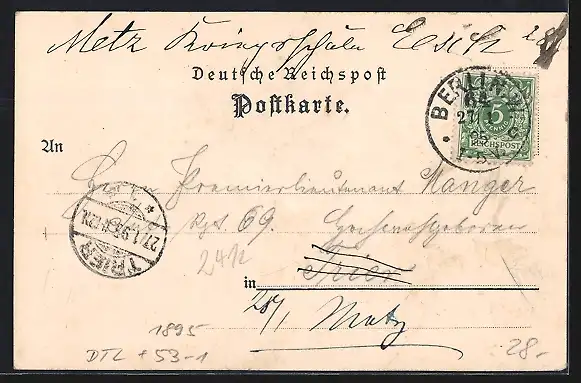 Metz Kriegsschule
Deutsche Reichspost
Postkarte.
BERLIN W
64
27
5
REICHSPOST
An
Herrn Premierlieutenant Manger
Rgt 69. Hochwohlgeboren
TRIER
27/1.95
24 K
in Trier
28/1 Metz
1895
DTL + 53-1
28.-